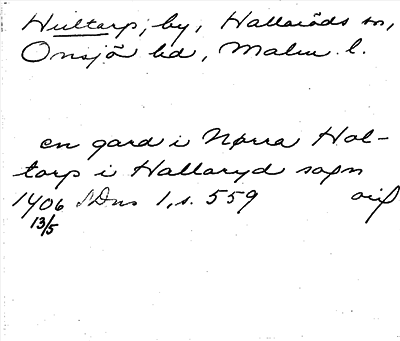 Hultarp, by, Hallaröds sn,
Onsjö hd, Malm. l.
en gard i Nørra Hol-
torp i Hallaryd sogn
1406 SDns 1, s. 559 orig
13/5